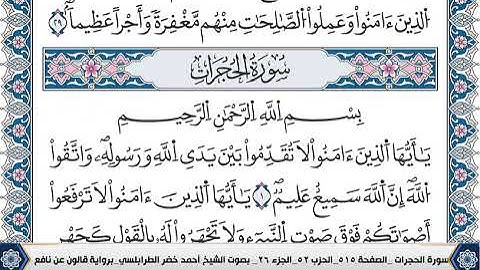 الذِينَ ءَامَنُواْ وَعَمِلُواْ الصَّٰلِحَٰتِ مِنْهُم مَّغْفِرَةً وَأَجْراً عَظِيماًۖ ٢٩
سُورَةُ الحُجُرَاتِ
بِسْمِ اِللَّهِ اِلرَّحْمَٰنِ اِلرَّحِيمِ
يَٰأَيُّهَا اَلذِينَ ءَامَنُواْ لَا تُقَدِّمُواْ بَيْنَ يَدَيِ اِللَّهِ وَرَسُولِهِۦۖ وَاتَّقُواْ
اُللَّهَۖ إِنَّ اَللَّهَ سَمِيعٌ عَلِيمٌۖ ١ يَٰأَيُّهَا اَلذِينَ ءَامَنُواْ لَا تَرْفَعُواْ
أَصْوَٰتَكُمْ فَوْقَ صَوْتِ اِلنَّبِےٓءِ وَلَا تَجْهَرُواْ لَهُۥ بِالْقَوْلِ كَجَهْرِ
سورة الحجرات _ الصفحة ٥١٥_ الحزب ٥٢_ الجزء ٢٦ _ بصوت الشيخ أحمد خضر الطرابلسي_برواية قالون عن نافع